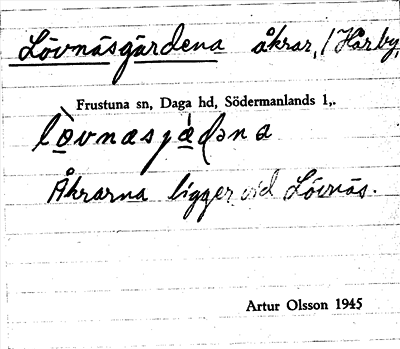 Lövnäsgärdena åkrar, / Harby,
Frustuna sn, Daga hd, Södermanlands l,.
Åkrarna ligger vid Lövnäs.
Artur Olsson 1945